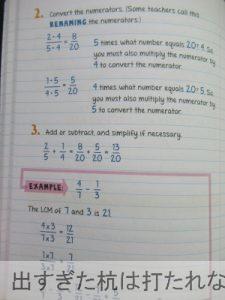 2. Convert the numerators. (Some teachers call this
RENAMING the numerators.)
2·4 / 5·4 = 8/20
5 times what number equals 20? 4. So
you must also multiply the numerator by
4 to convert the numerator.
1·5 / 4·5 = 5/20
4 times what number equals 20? 5. So
you must also multiply the numerator by
5 to convert the numerator.
3. Add or subtract, and simplify if necessary.
2/5 + 1/4 = 8/20 + 5/20 = 13/20
EXAMPLE: 4/7 - 1/3
The LCM of 7 and 3 is 21.
4x3 / 7x3 = 12/21
1x7 / 3x7 = 7/21
出すぎた杭は打たれな